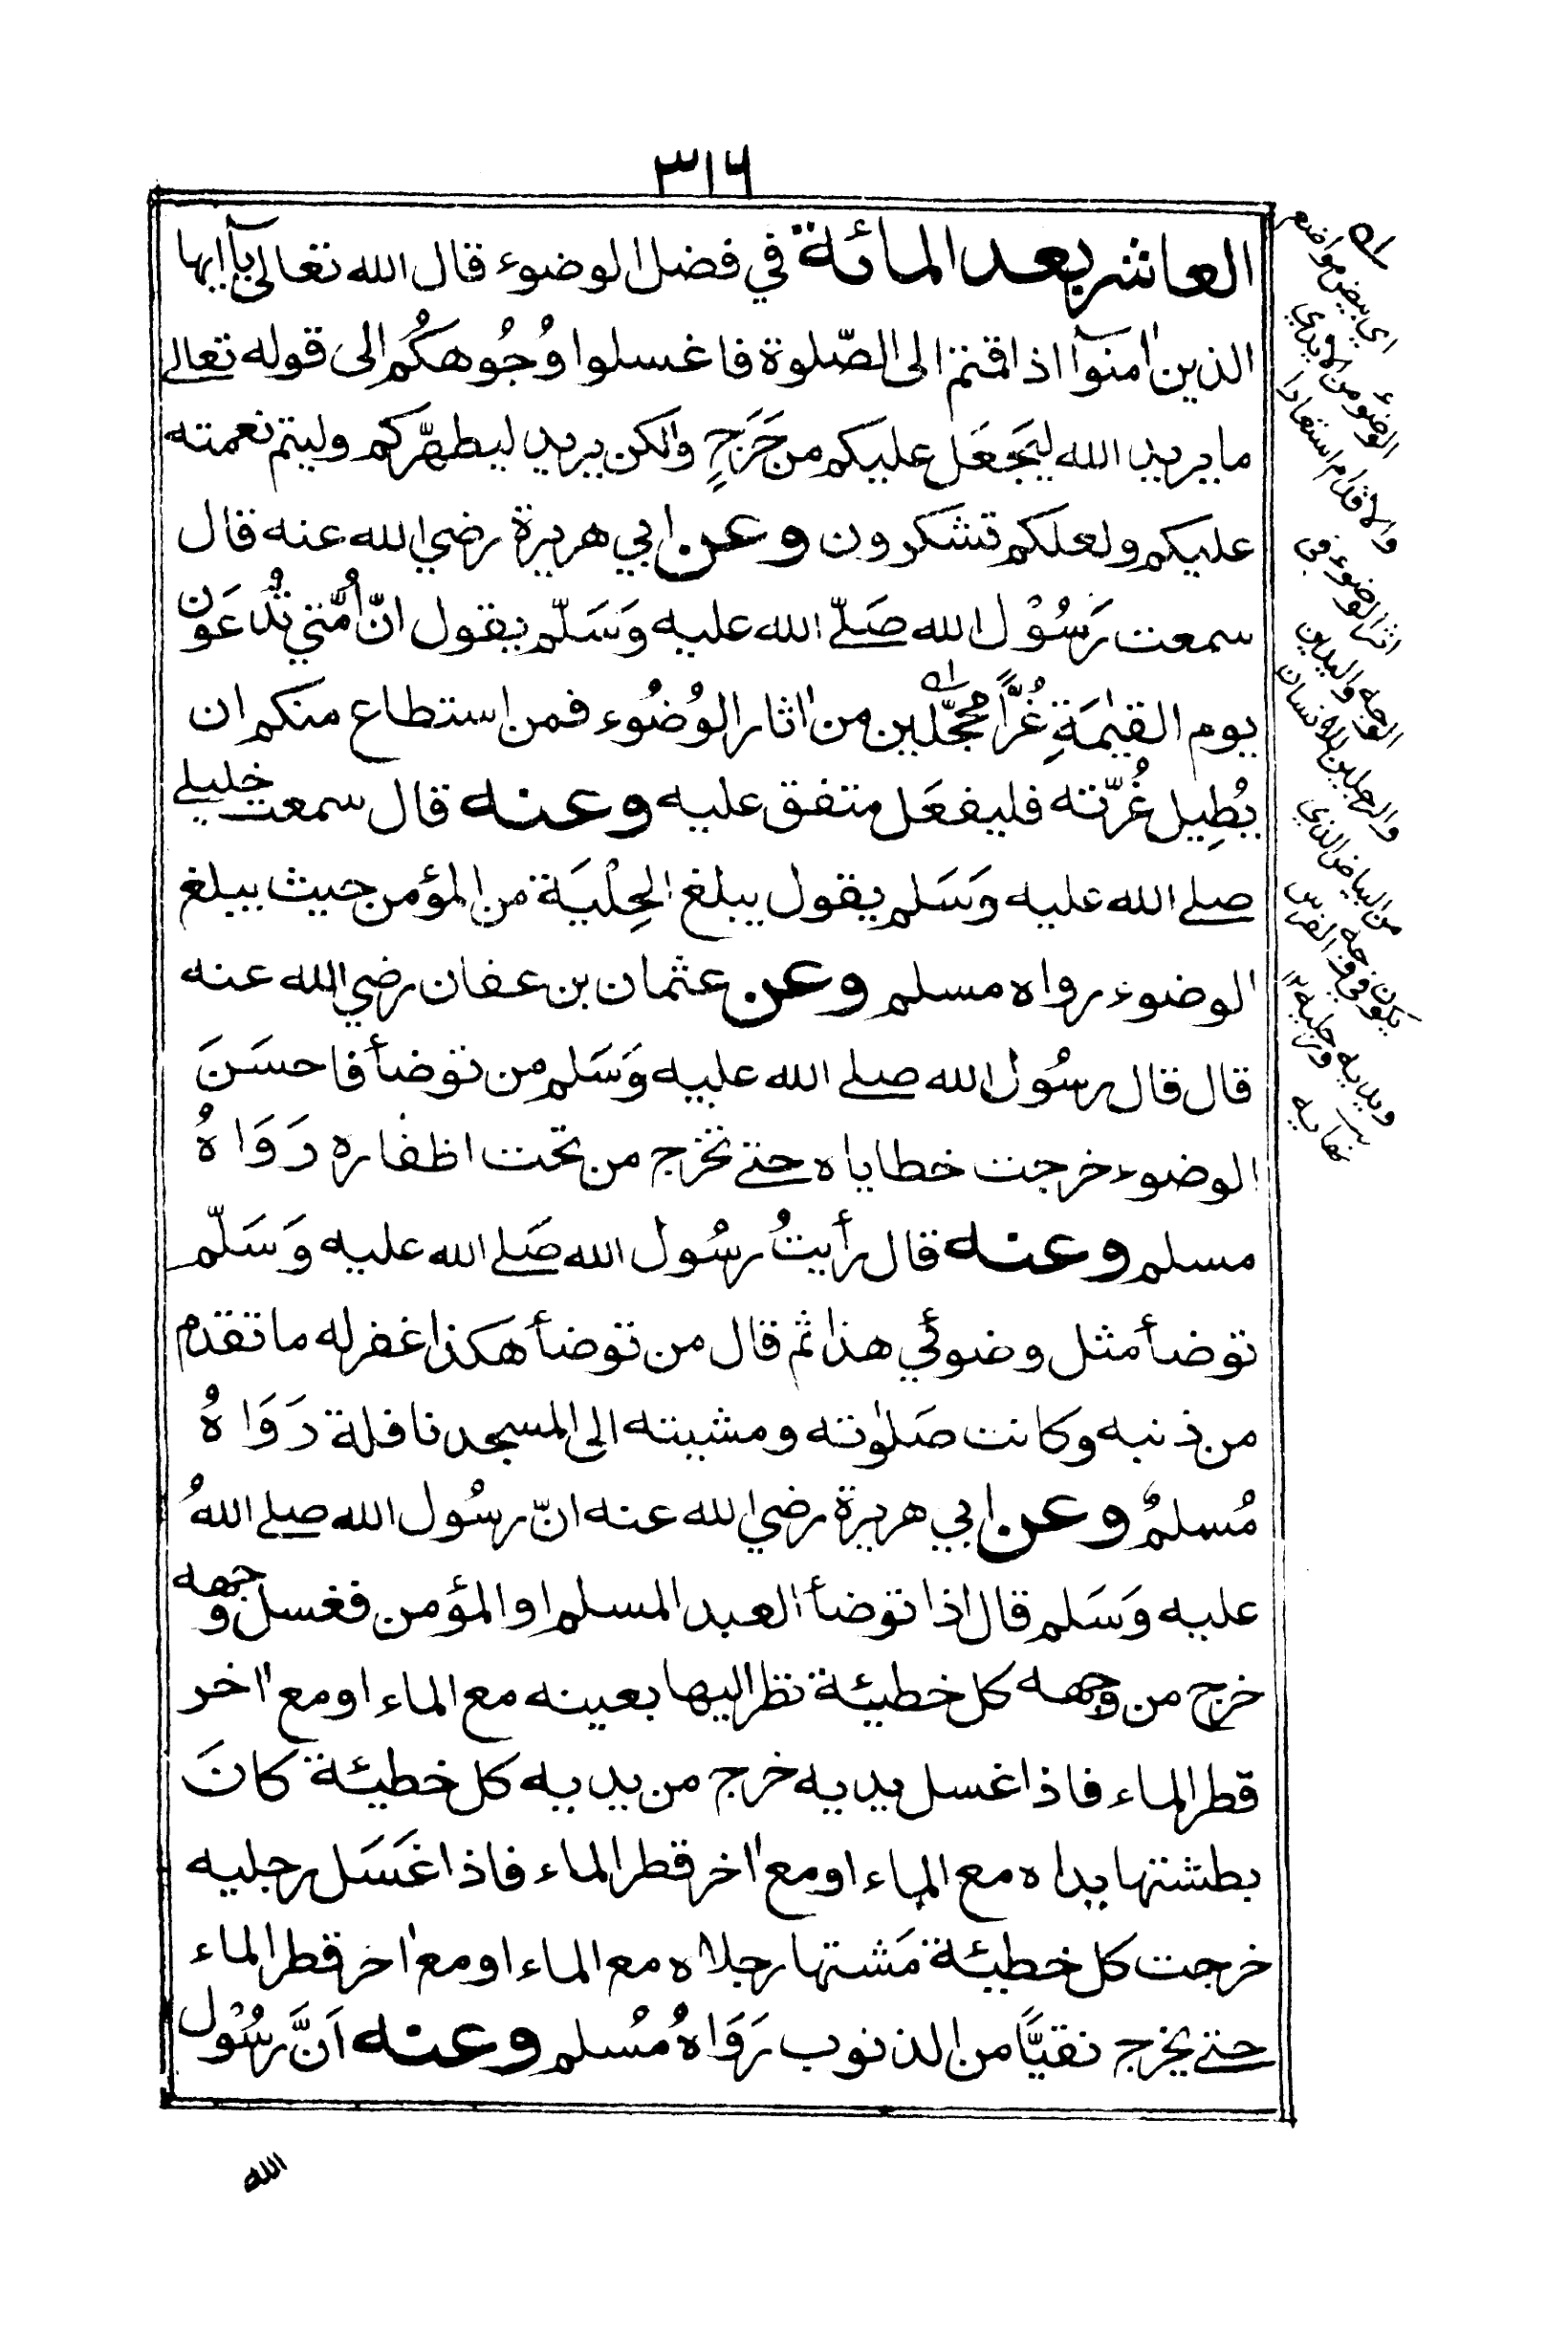 ٣١٦
العاشر بعد المائة في فضل الوضوء قال الله تعالى يآايها
الذين اٰمنوآ اذا قمتم الى الصّلوة فاغسلوا وُجُوهكُم الى قوله تعالے
ما يريد الله ليَجعَل عليكم من حَرَجٍ ولكن يريد ليطهّركم وليتم نعمته
عليكم ولعلكم تشكرون وعن ابي هريرة رضي الله عنه قال
سمعت رَسُوْل الله صَلّے الله عليه وَسَلّم يقول انّ اُمّتي يُدْعَون
يوم القيٰمَةِ غُرًّا مُحَجَّلين من اٰثار الوُضُوء فمن استطاع منكم ان
يُطِيل غُرّته فليفعَل متفق عليه وعنه قال سمعت خليلے
صلے الله عليه وَسَلم يقول يبلغ الحِلْيَة من المؤمن حيث يبلغ
الوضوء رواه مسلم وعن عثمان بن عفان رضي الله عنه
قال قال رسُول الله صلے الله عليه وَسَلم من توضأ فاحسَنَ
الوضوء خرجت خطاياه حتے تخرج من تحت اظفاره رَوَاهُ
مسلم وعنه قال رأيتُ رسُول الله صَلے الله عليه وَسَلّم
توضأ مثل وضوئي هذا ثم قال من توضأ هكذا غفر له ما تقدم
من ذنبه وكانت صَلٰوته ومشيته الى المسجد نافلة رَوَاهُ
مُسلمٌ وعن ابي هريرة رضي الله عنه انّ رسُول الله صلے اللهُ
عليه وَسَلم قال اذا توضأ العبد المسلم او المؤمن فغسل وجهه
خرج من وجهه كل خطيئة نظر اليها بعينه مع الماء او مع اٰخر
قطر الماء فاذا غسل يديه خرج من يديه كل خطيئة كانَ
بطشتها يداه مع الماء او مع اٰخر قطر الماء فاذا غَسَل رجليه
خرجت كل خطيئة مَشتها رجلاه مع الماء او مع اٰخر قطر الماء
حتے يخرج نقيًّا من الذنوب رَوَاهُ مُسلم وعنه اَنَّ رسُوْل
الله
اي بيض مواضع
الوضوء من الايدي
والاقدام استعار
اثر الوضوء في
الوجه واليدين
والرجلين للانسان
من البياض الذي
يكون في وجه الفرس
ويديه ورجليه ١٢
نهايه